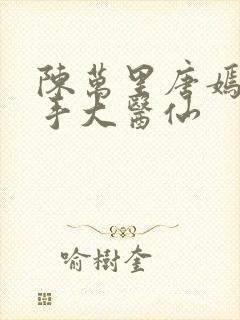 陳萬里唐嫣
手大醫仙
喻樹奎